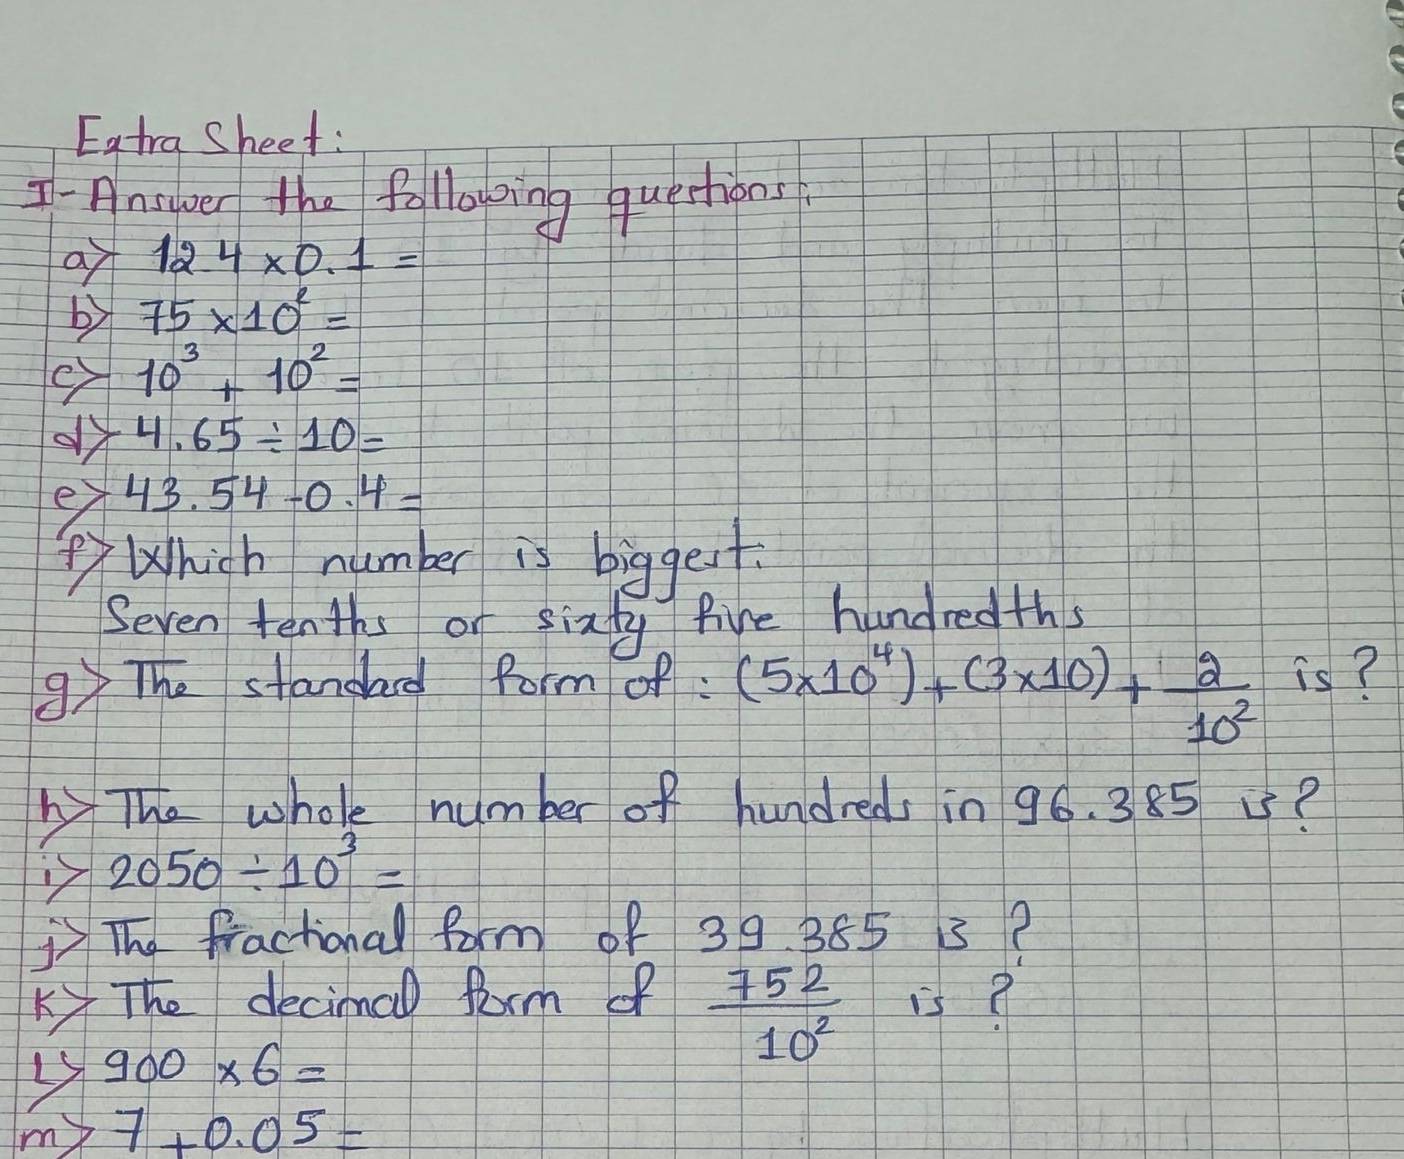 Extra Sheet:
I- Answer the following questions:
a> 12.4 x 0.1 =
b> 75 x 10² =
c> 10³ + 10² =
d> 4.65 ÷ 10 =
e> 43.54 - 0.4 =
f> Which number is biggest:
Seven tenths or sixty five hundredths
g> The standard form of : (5x10⁴) + (3x10) + 2/10² is ?
h> The whole number of hundreds in 96.385 is ?
i> 2050 ÷ 10³ =
j> The fractional form of 39.385 is ?
K> The decimal form of 752/10² is ?
L> 900 x 6 =
m> 7 + 0.05 =